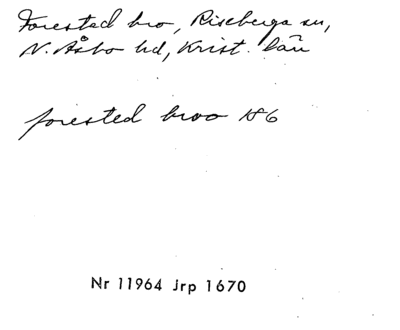 Forestad bro, Riseberga sn,
N. Åsbo hd, Krist. län
forested broo 186
Nr 11964 Jrp 1670